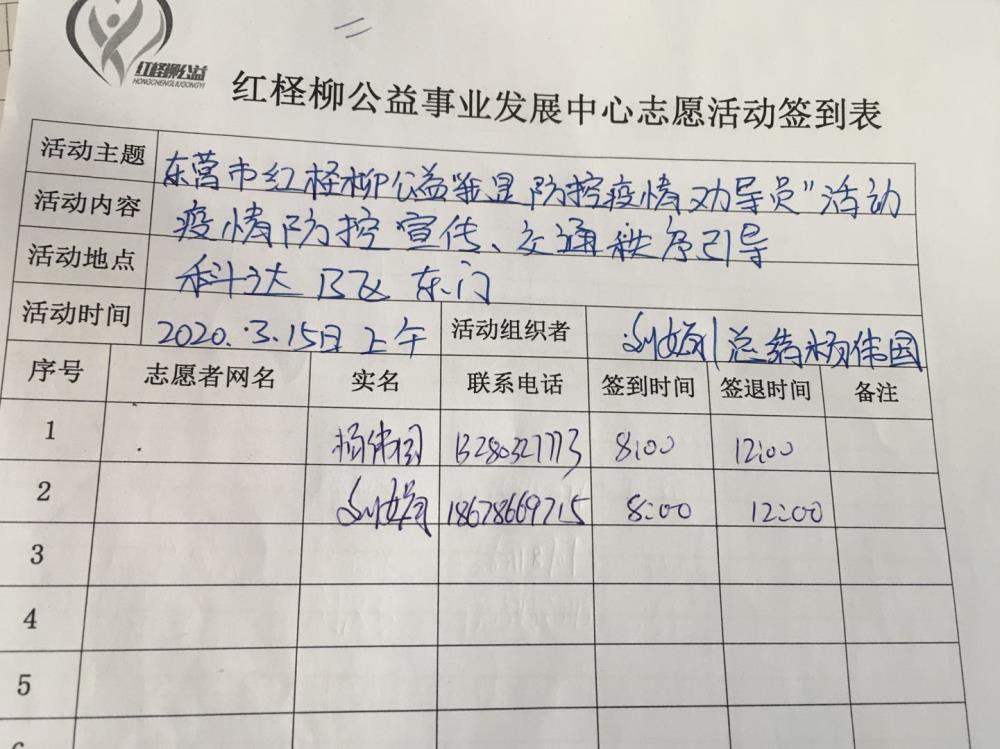 红柽柳公益
HONGCHENGLIUGONGYI
红柽柳公益事业发展中心志愿活动签到表
活动主题 东营市红柽柳公益"我是防控疫情劝导员"活动
活动内容 疫情防控宣传、交通秩序引导
活动地点 科达 B区 东门
活动时间 2020.3.15日上午 活动组织者 刘娟 杨伟国
序号 志愿者网名 实名 联系电话 签到时间 签退时间 备注
1 杨伟国 13280327773 8:00 12:00
2 刘娟 18678669715 8:00 12:00
3
4
5